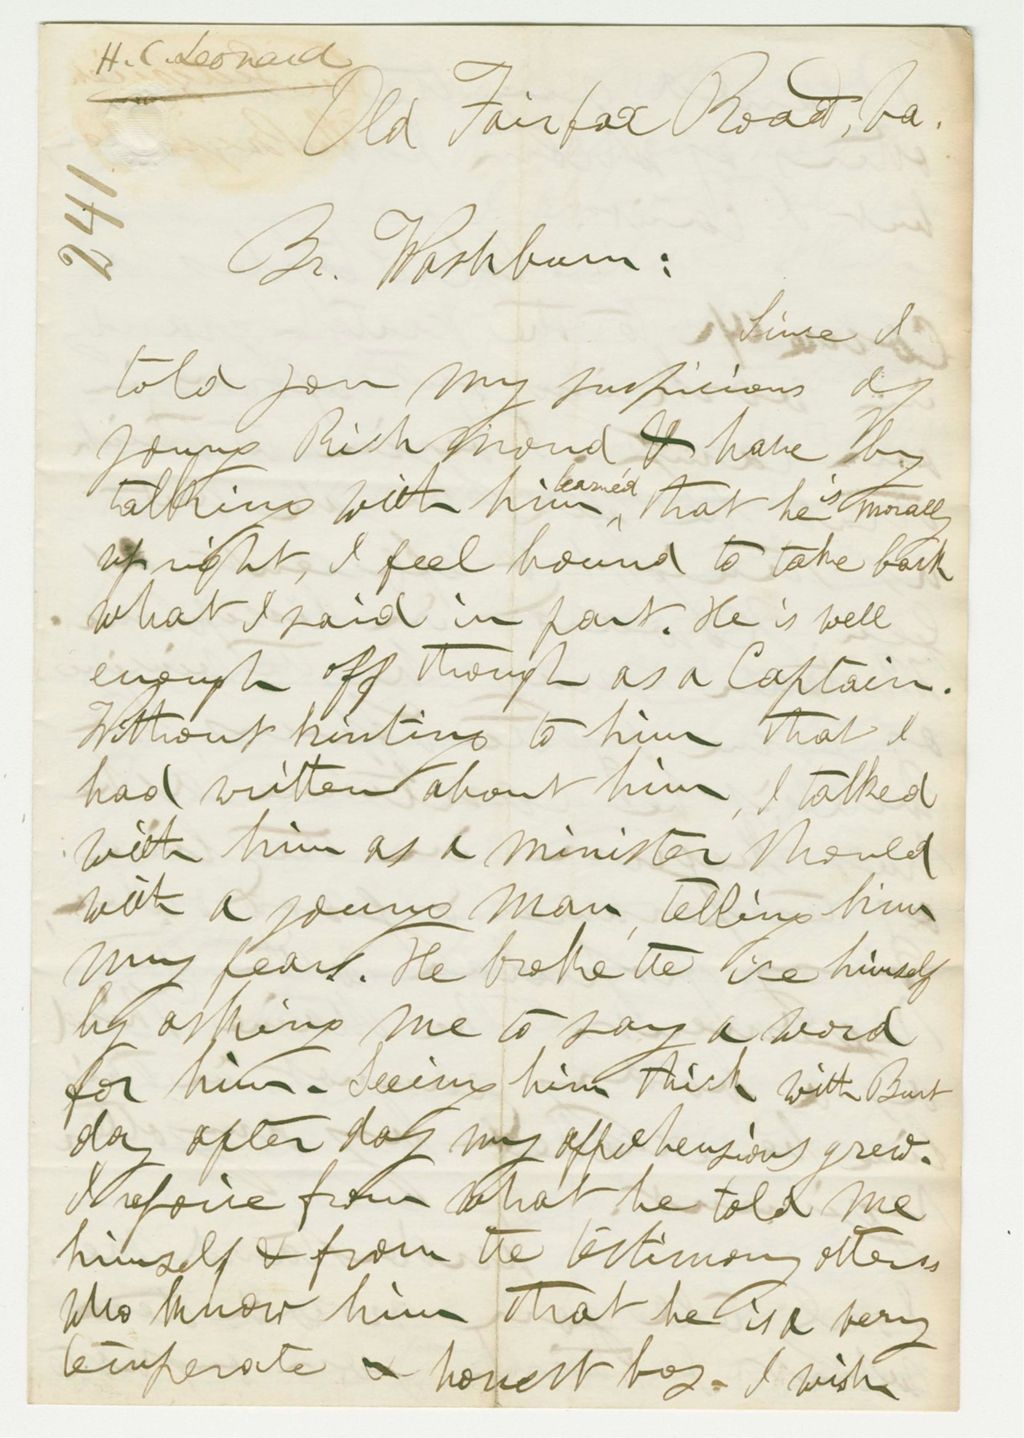 H. C. Leonard
Old Fairfax Road, Va.
241
Br. Washburn:
Since I
told you my suspicions of
young Richmond & have by
talking with him learned, that he is morally
upright, I feel bound to take back
what I said in part. He is well
enough off though as a Captain.
Without hinting to him that I
had written about him, I talked
with him as a minister should
with a young man, telling him
my fears. He broke the ice himself
by asking me to say a word
for him. Seeing him thick with Burt
day after day my apprehensions grew.
I rejoice from what he told me
himself & from the testimony others
who know him that he is a very
temperate & honest boy. I wish